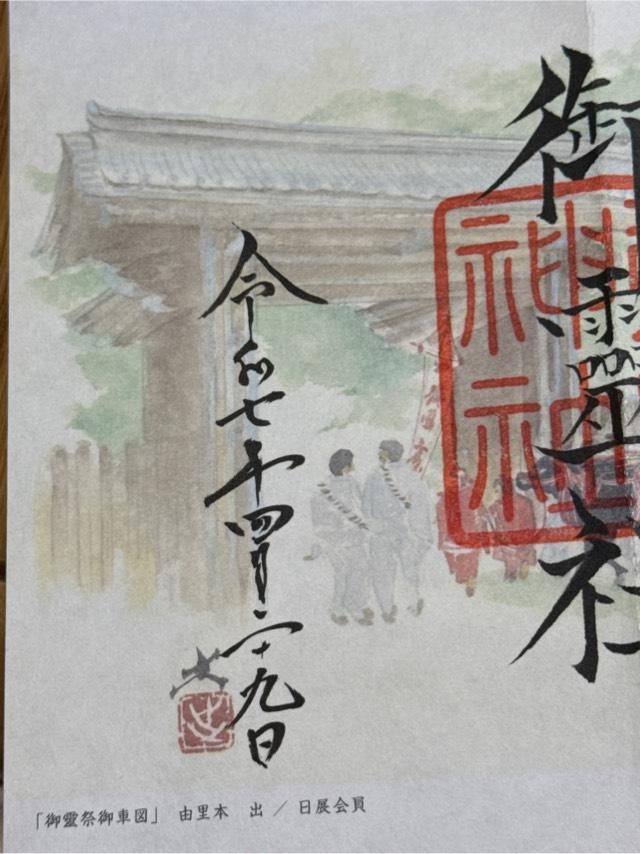 御靈社
令和七年四月二十九日
「御靈祭御車図」 由里本 出 / 日展会員